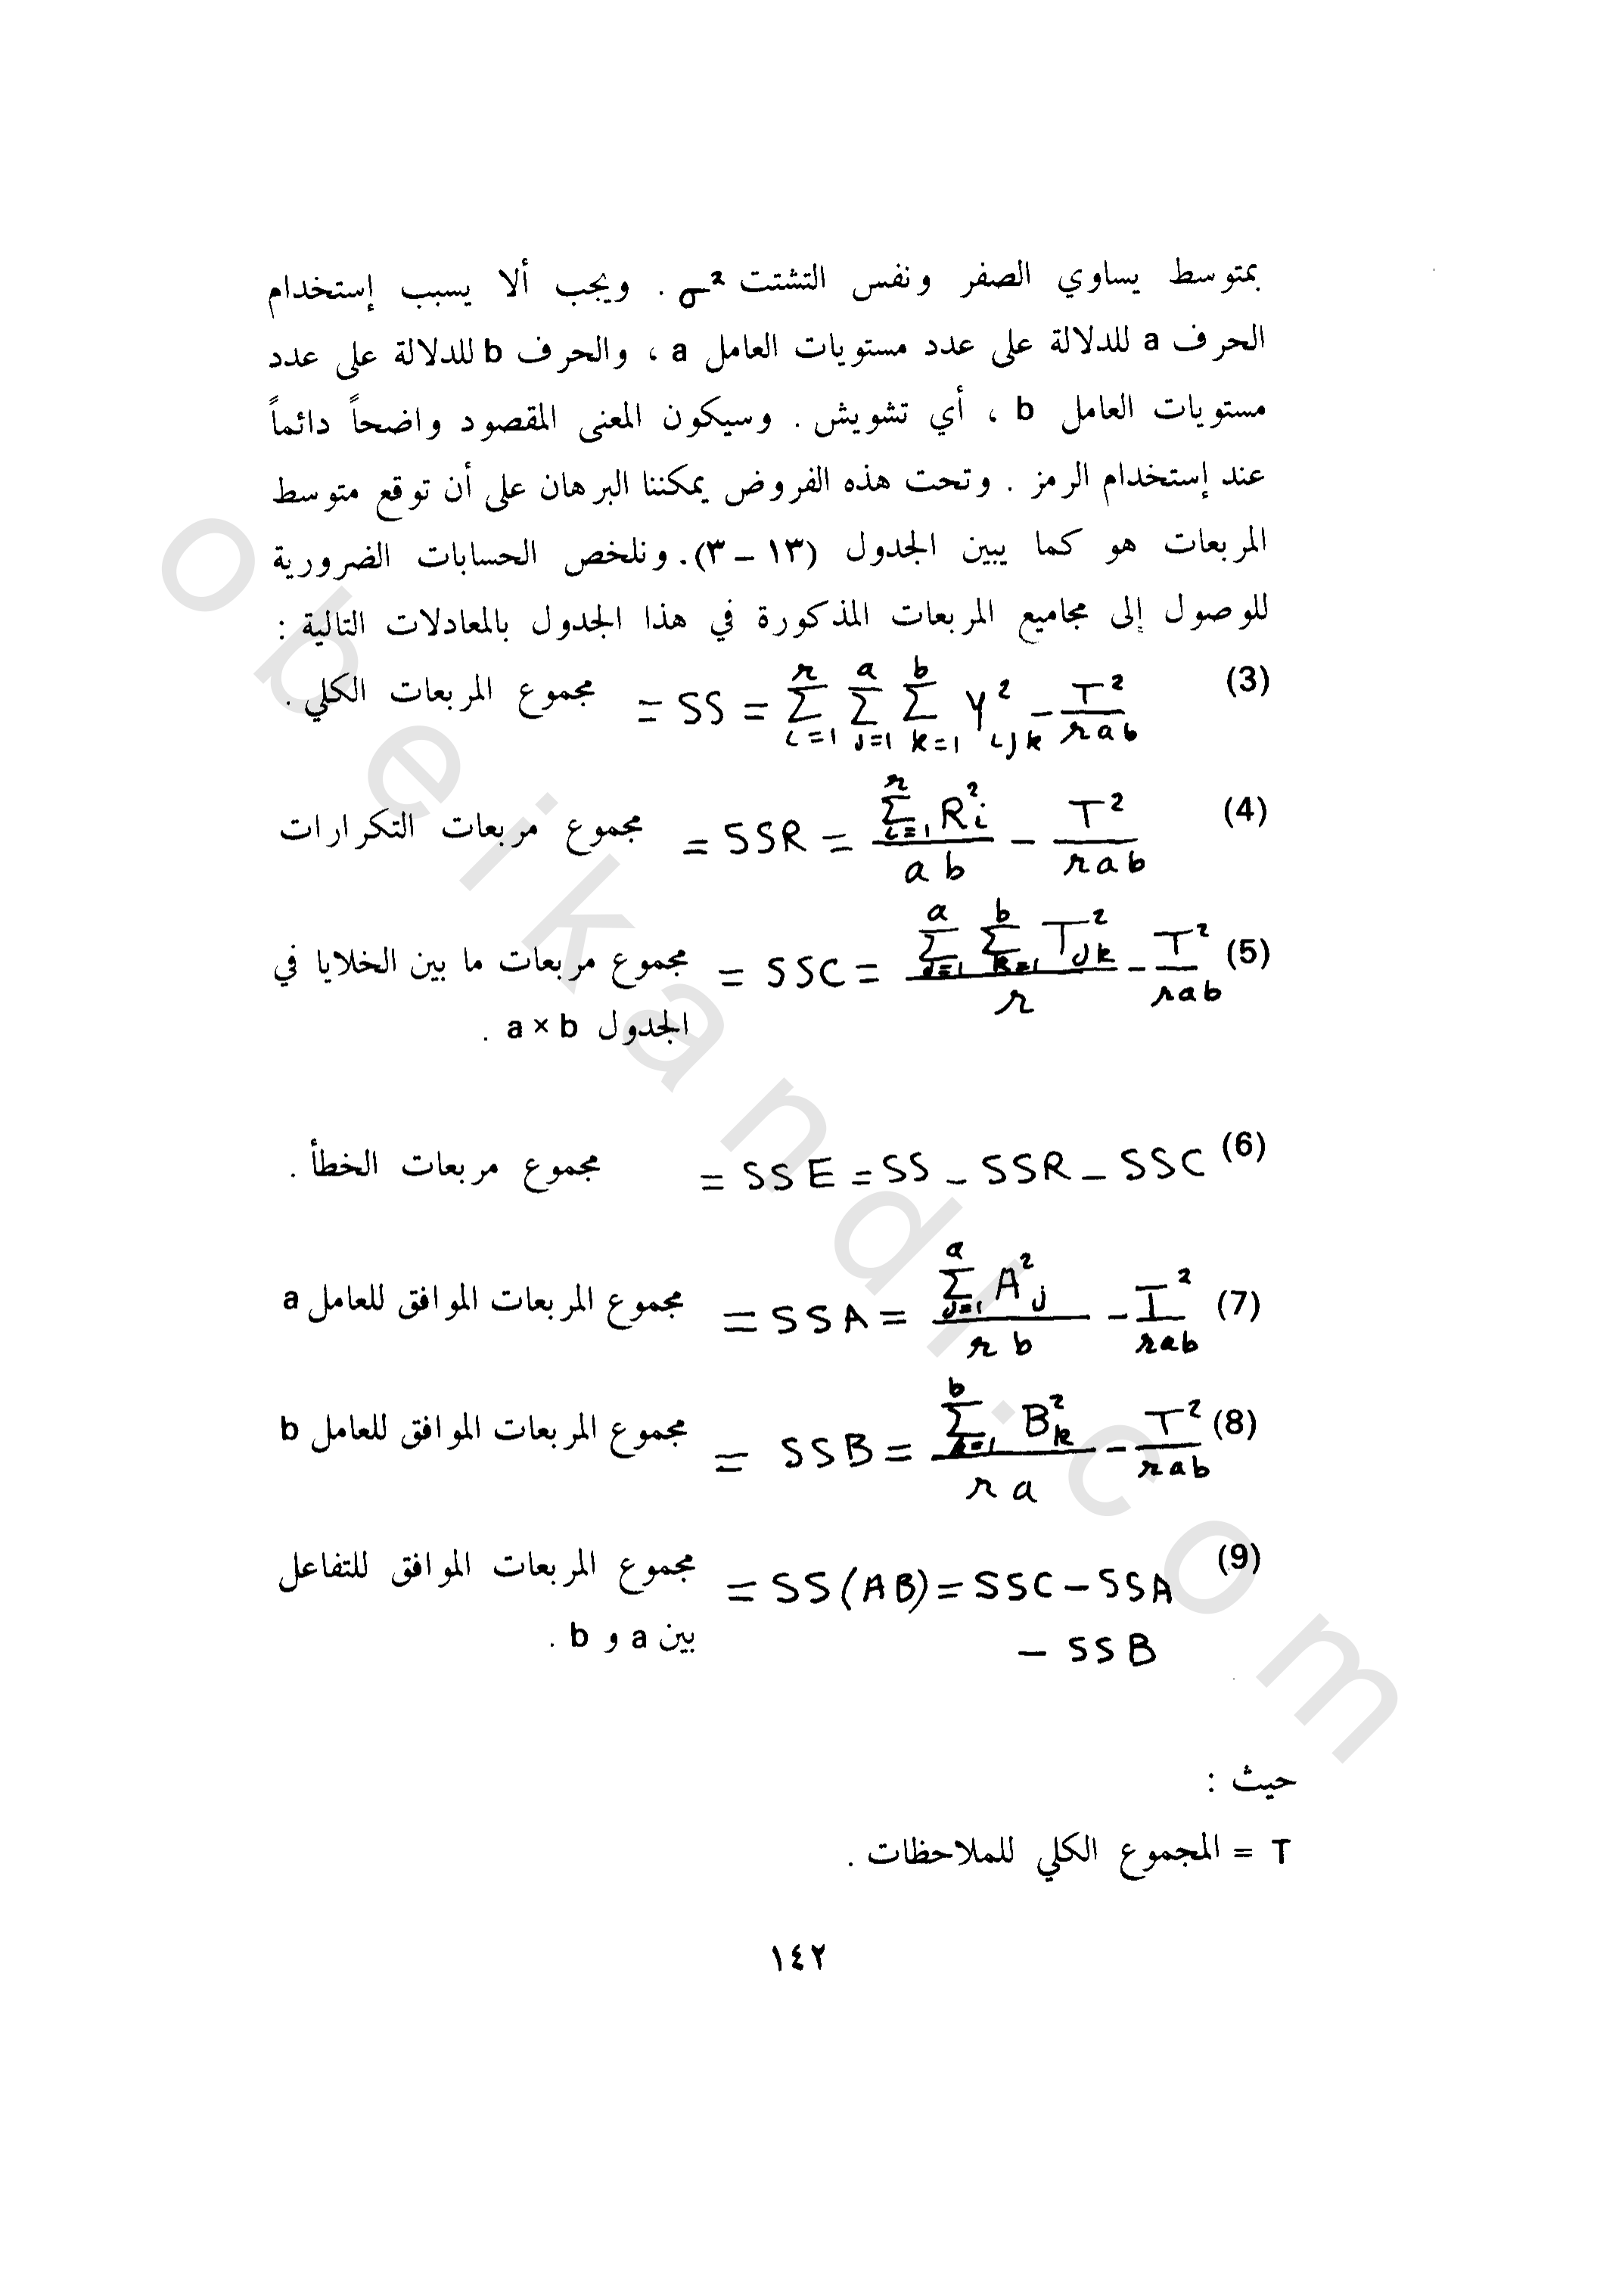 بمتوسط يساوي الصفر ونفس التشتت σ² . ويجب ألا يسبب إستخدام
الحرف a للدلالة على عدد مستويات العامل a ، والحرف b للدلالة على عدد
مستويات العامل b ، أي تشويش . وسيكون المعنى المقصود واضحاً دائماً
عند إستخدام الرمز . وتحت هذه الفروض يمكننا البرهان على أن توقع متوسط
المربعات هو كما يبين الجدول (١٣ – ٣). ونلخص الحسابات الضرورية
للوصول إلى مجاميع المربعات المذكورة في هذا الجدول بالمعادلات التالية :
(3) مجموع المربعات الكلي . = SS = \sum_{i=1}^{r} \sum_{j=1}^{a} \sum_{k=1}^{b} Y^2_{ijk} - \frac{T^2}{rab}
(4) مجموع مربعات التكرارات = SSR = \frac{\sum_{i=1}^{r} R^2_i}{ab} - \frac{T^2}{rab}
(5) مجموع مربعات ما بين الخلايا في = SSC = \frac{\sum_{j=1}^{a} \sum_{k=1}^{b} T^2_{jk}}{r} - \frac{T^2}{rab}
الجدول a × b .
(6) مجموع مربعات الخطأ . = SSE = SS - SSR - SSC
(7) مجموع المربعات الموافق للعامل a = SSA = \frac{\sum_{j=1}^{a} A^2_j}{rb} - \frac{T^2}{rab}
(8) مجموع المربعات الموافق للعامل b = SSB = \frac{\sum_{k=1}^{b} B^2_k}{ra} - \frac{T^2}{rab}
(9) مجموع المربعات الموافق للتفاعل = SS(AB) = SSC - SSA
بين a و b . - SSB
حيث :
T = المجموع الكلي للملاحظات .
١٤٢
obeikandl.com